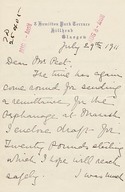 8 Hamilton Park Terrace
Hillhead
Glasgow
July 29th 1911
Dear Mr Peet.
The time has again
come round for sending
a remittance, for the
Orphanage at Marash
I enclose draft for
Twenty Pounds sterling
which I hope will reach
safely.
I was much